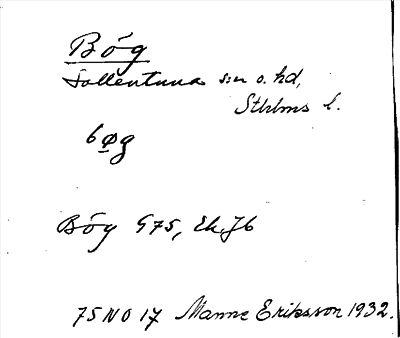 Bög
Sollentuna sn o. hd,
Sthlms l.
bøg
Bög G75, Ek. Jb
75 NO 17 Manne Eriksson 1932.